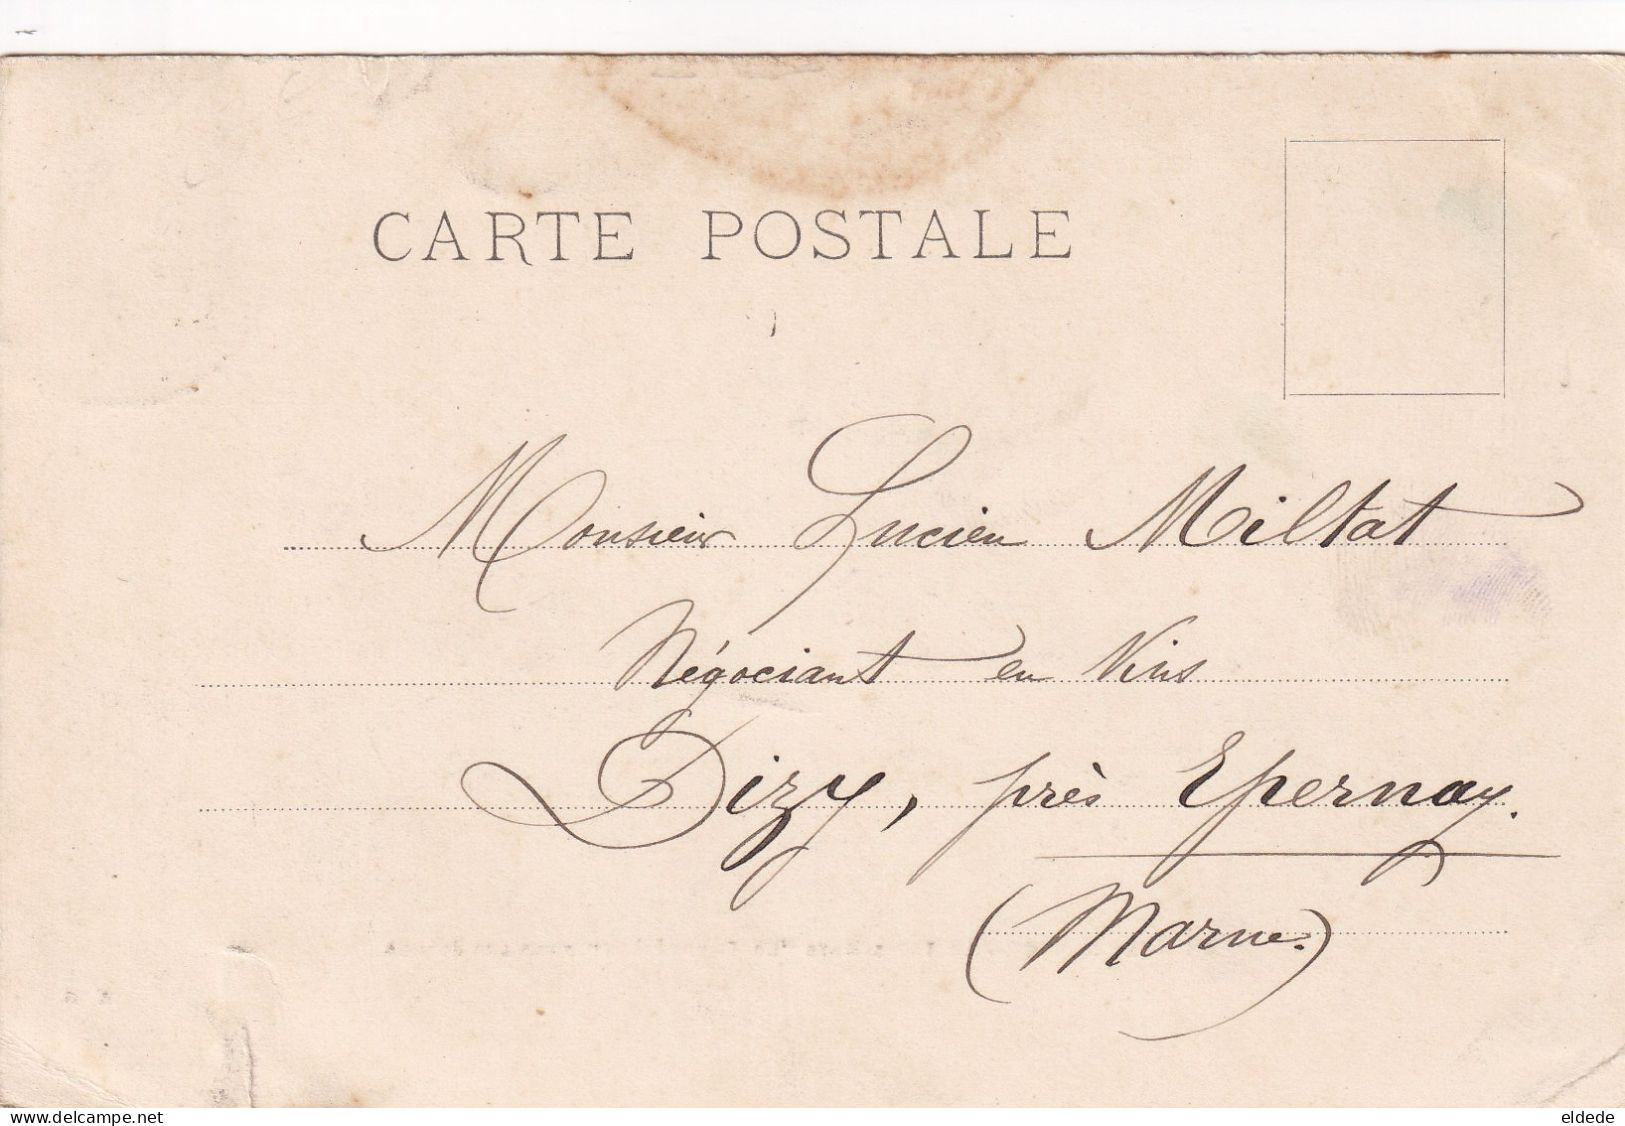 CARTE POSTALE
Monsieur Lucien Miltat
Négociant en Vins
Dizy, près Epernay.
(Marne.)
www.delcampe.net
eldede